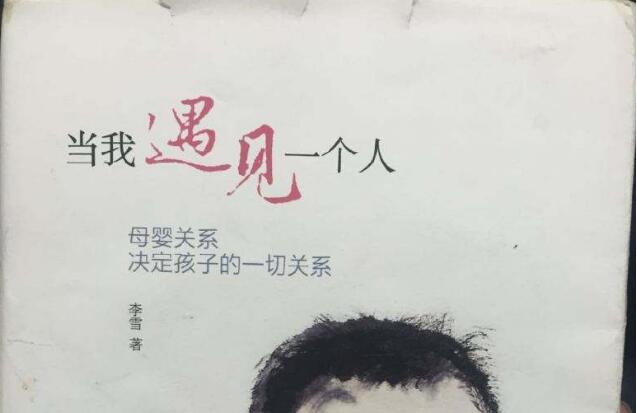 当我遇见一个人
母婴关系
决定孩子的一切关系
李雪 著